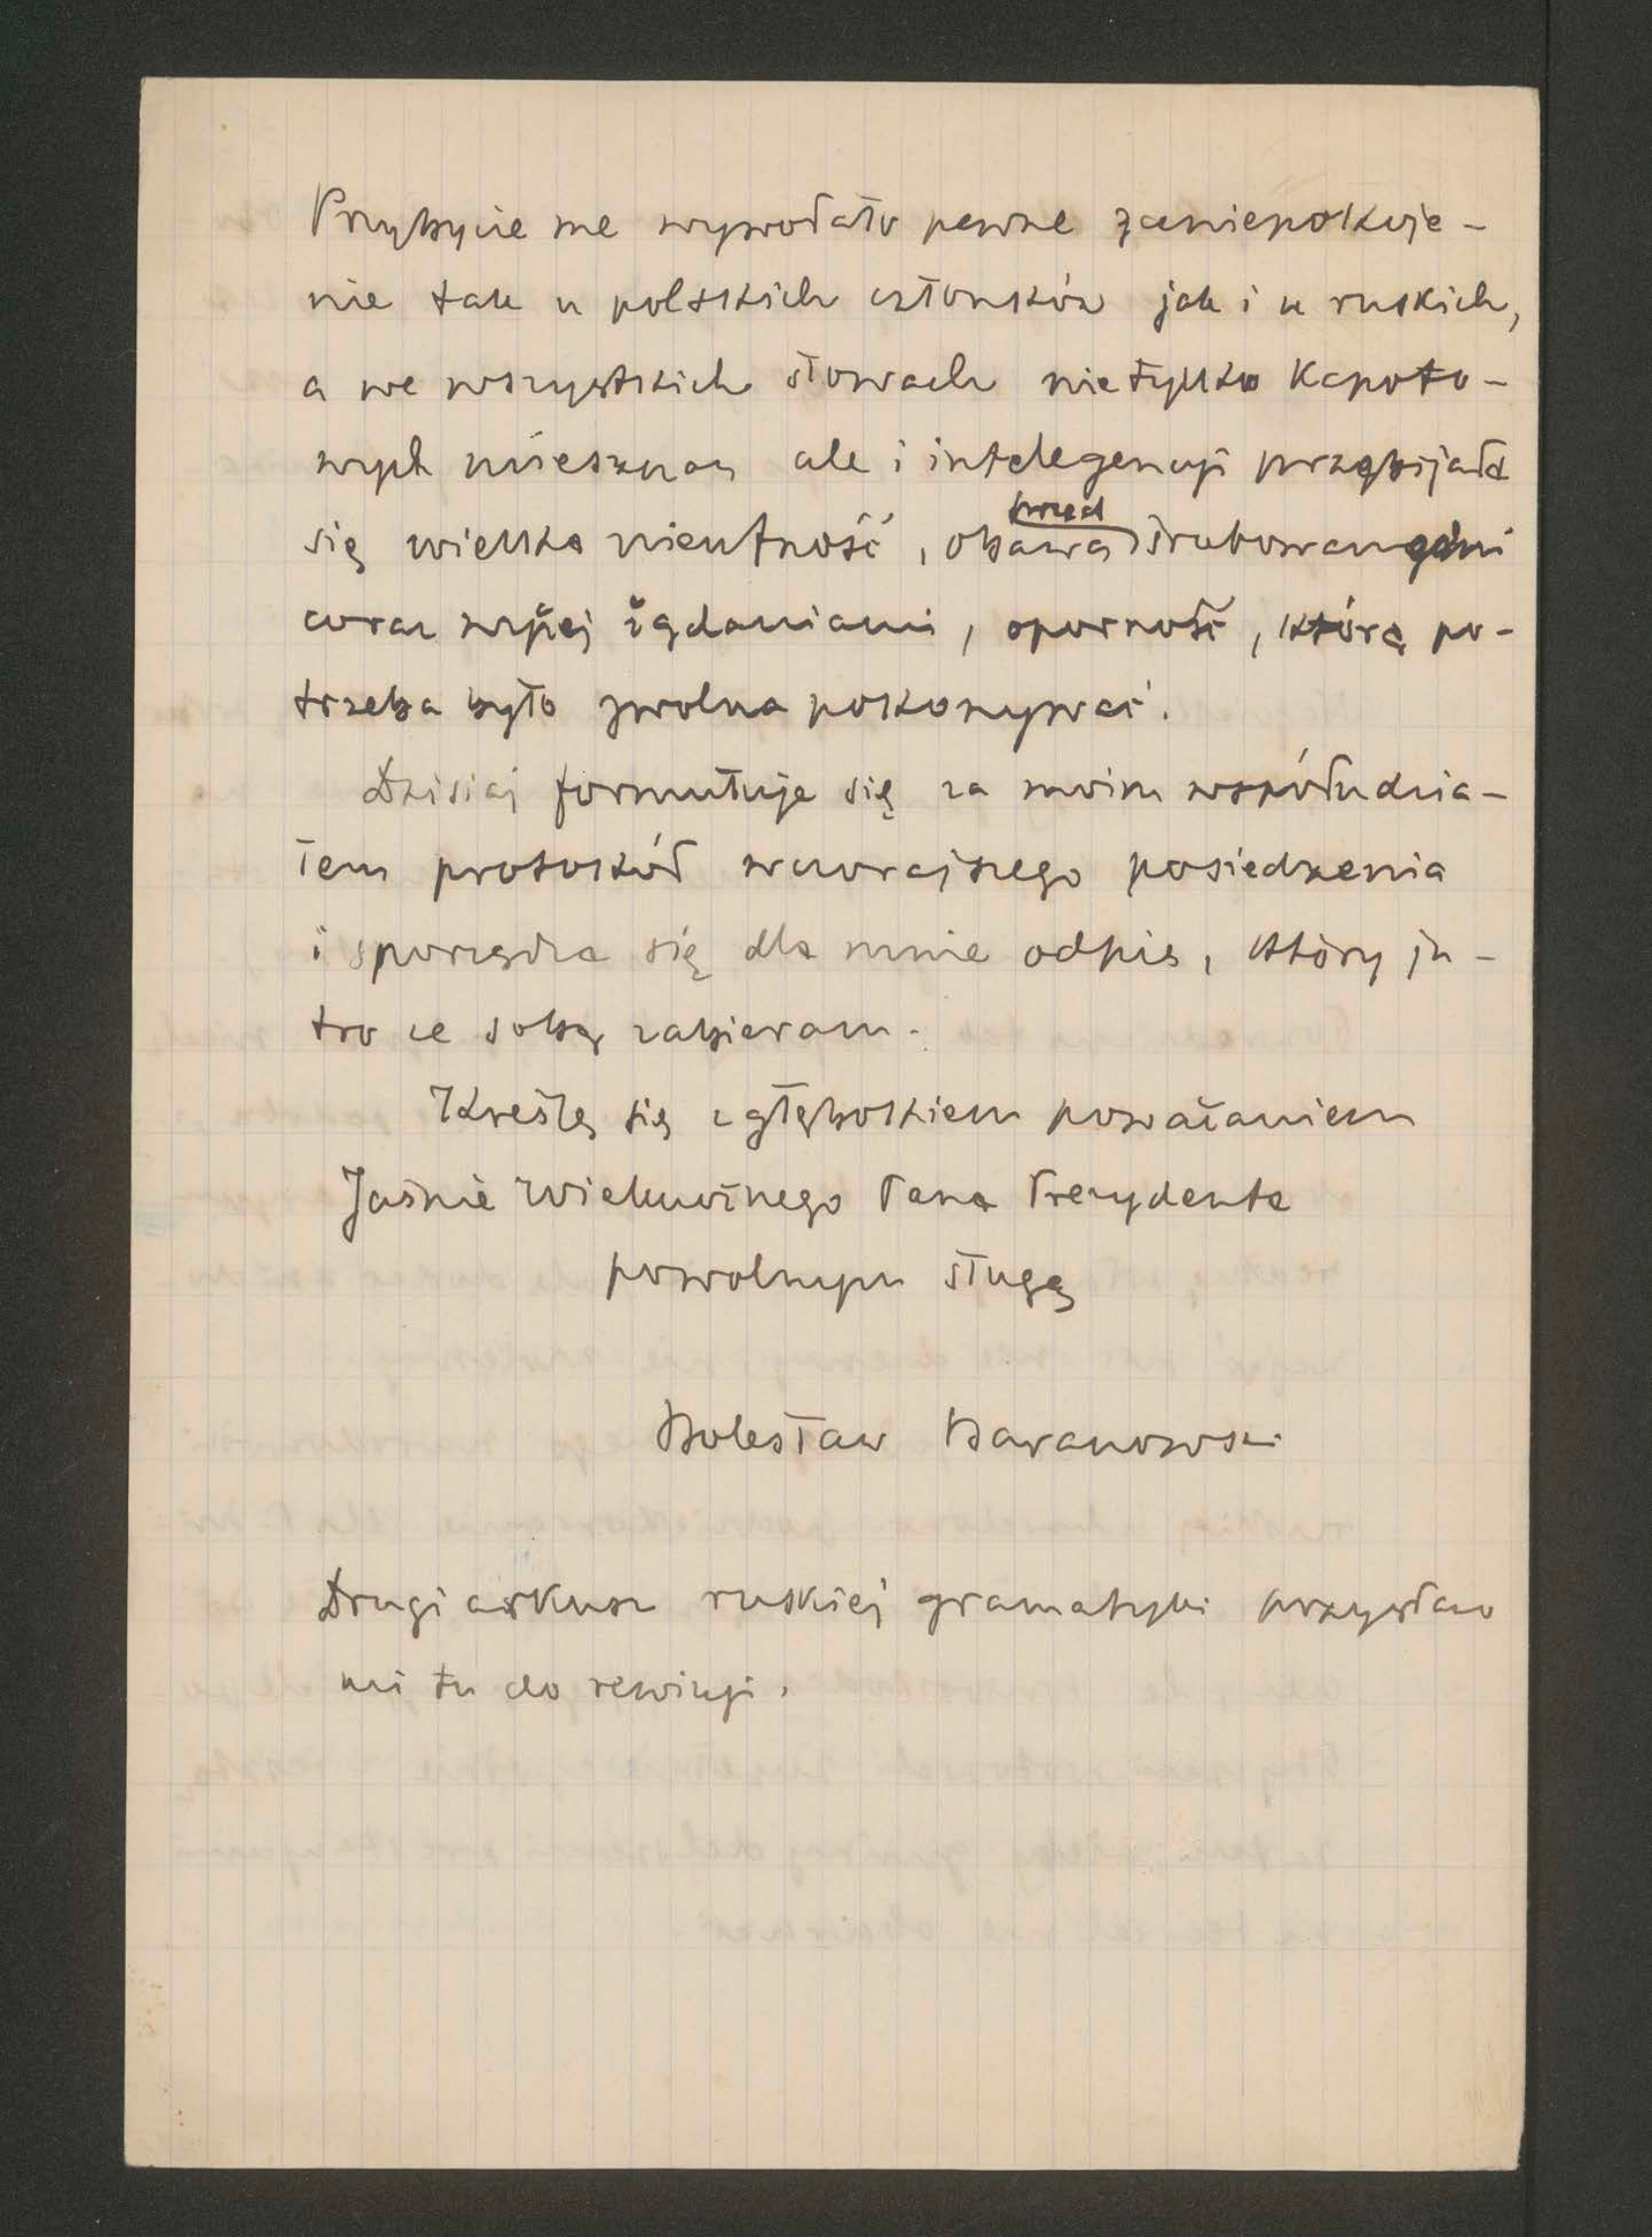 Przybycie me wywołało pewne zaniepokoje-
nie tak u polskich członków jak i u ruskich,
a we wszystkich słowach nietylko kapoto-
wych mieszczan ale i intelegencji przebijała
się wielka nieufność, obawa przed śrubowanymi
coraz wyżej żądaniami, oporność, którą po-
trzeba było zwolna pokonywać.
Dzisiaj formułuje się za moim współudzia-
łem protokół wczorajszego posiedzenia
i sporządza się dla mnie odpis, który ju-
tro ze sobą zabieram.
Kreślę się z głębokiem poważaniem
Jaśnie Wielmożnego Pana Prezydenta
powolnym sługą
Bolesław Baranowski
Drugi arkusz ruskiej gramatyki przysłano
mi tu do rewizji.